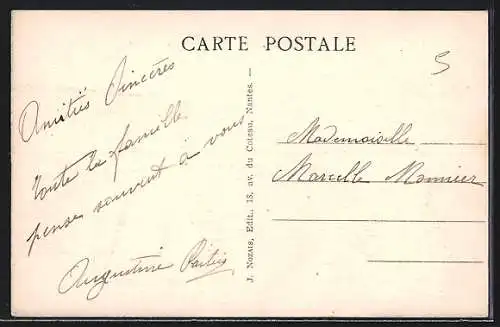 CARTE POSTALE
5
Amitiés Sincères
toute la famille
pense souvent à vous
Augustine
J. Nozais, Edit., 18, av. du Coteau, Nantes. —
Mademoiselle
Marcelle Monnier